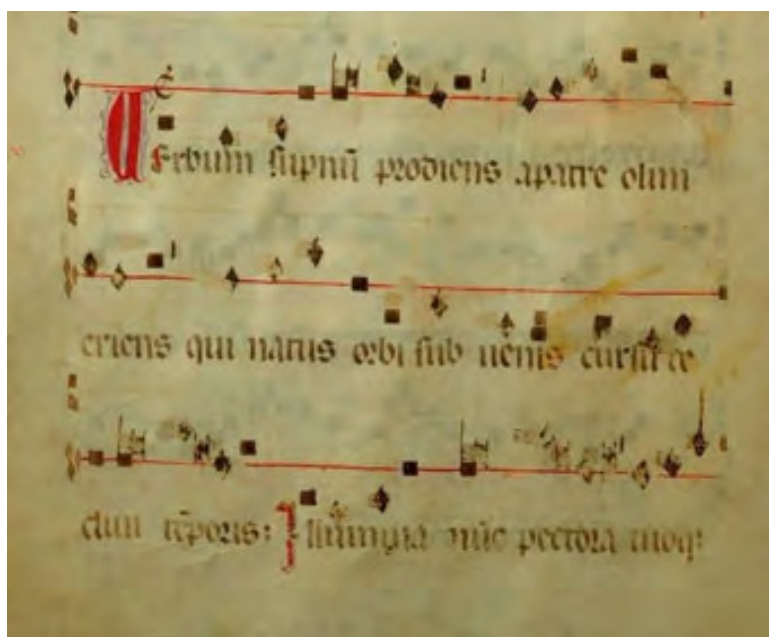 VErbum supnū prodiens apatre olim
exiens qui natus orbi sub uenis cursu te
cliui tēporis: Illumina nūc pectora tuoq: